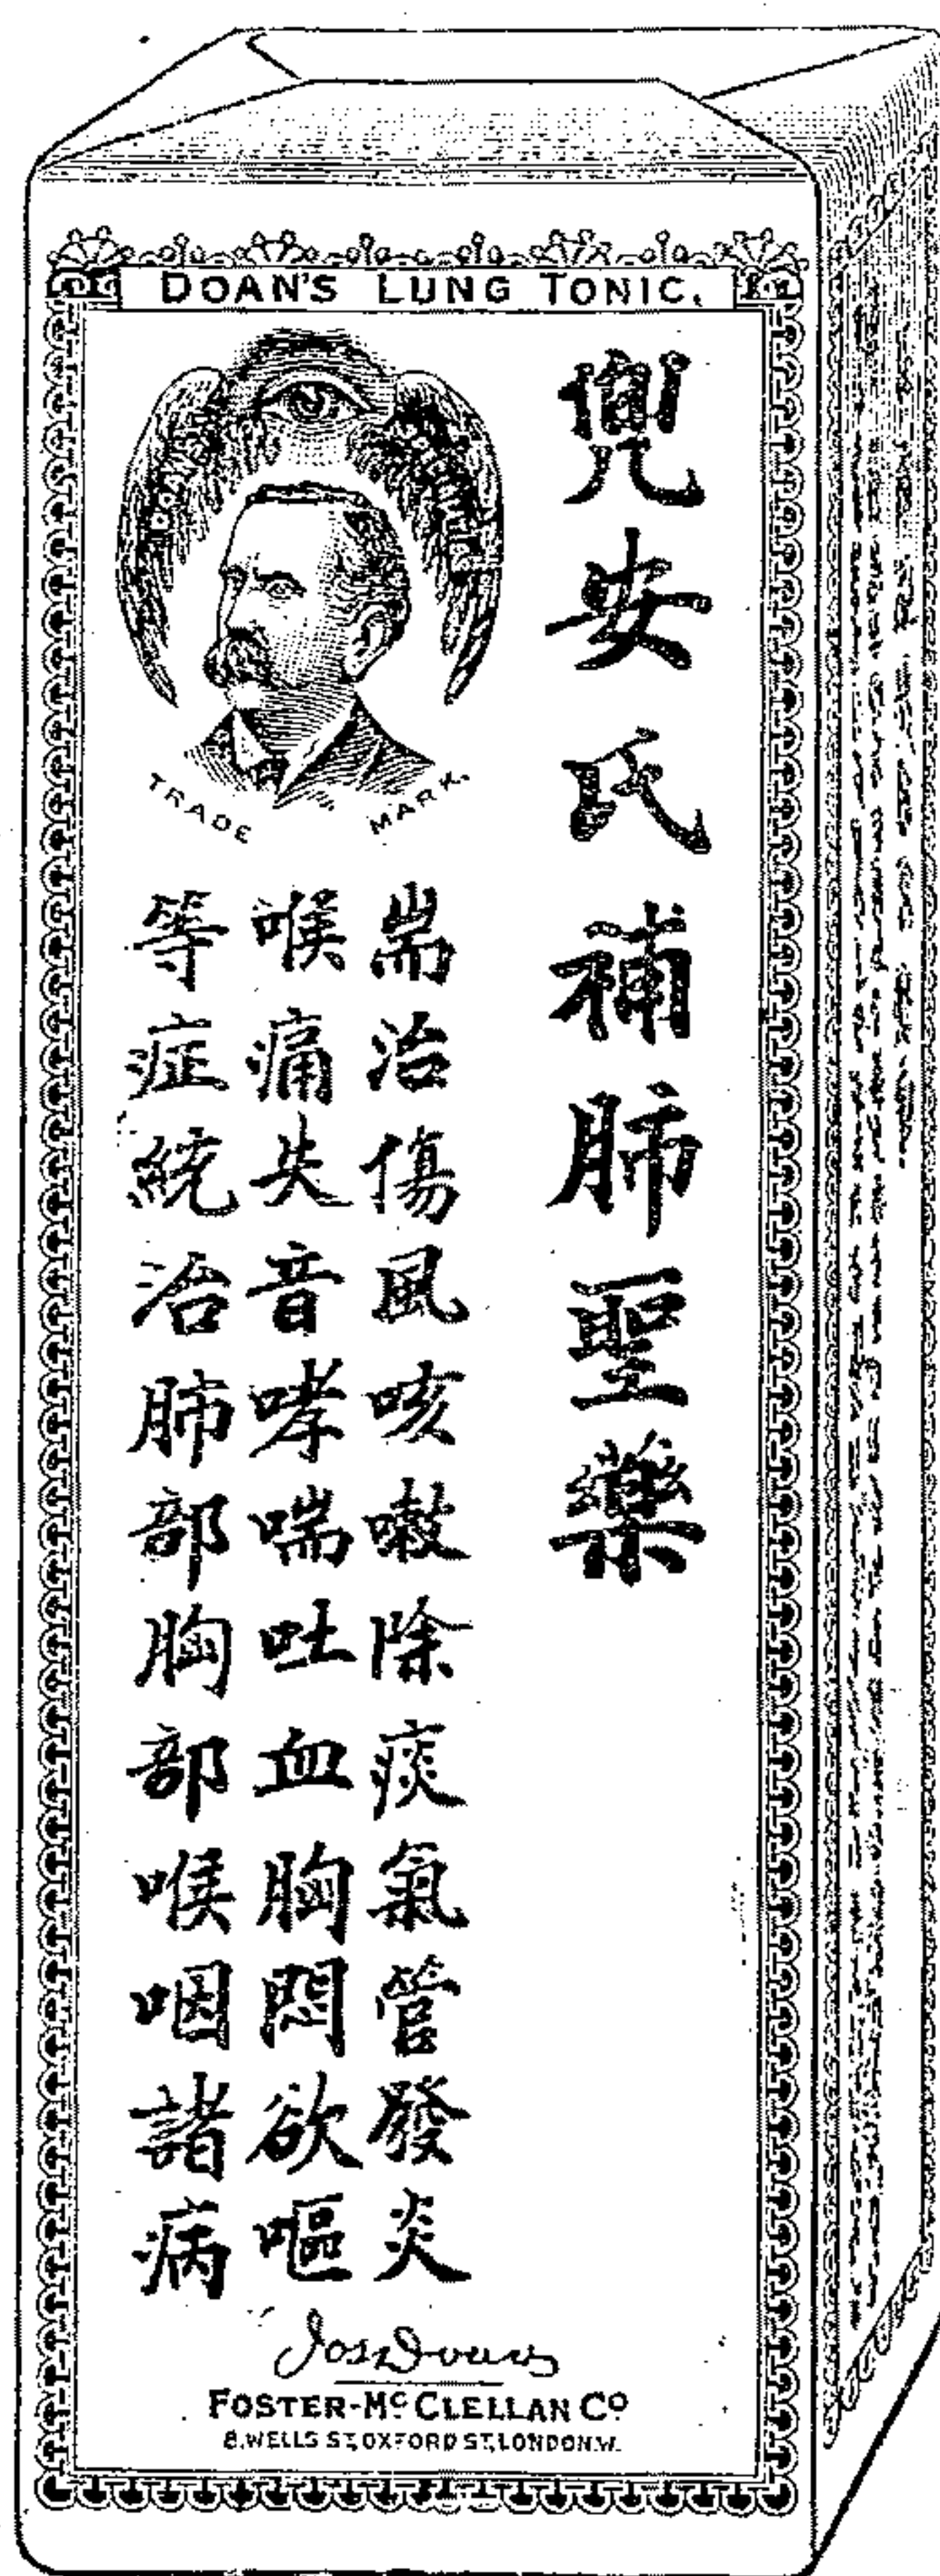 DOAN'S LUNG TONIC.
兜安氏補肺聖藥
TRADE MARK.
耑治傷風咳嗽除痰氣管發炎
喉痛失音哮喘吐血胸悶欲嘔
等症統治肺部胸部喉咽諸病
FOSTER-McCLELLAN Co
8, WELLS ST, OXFORD ST, LONDON.W.